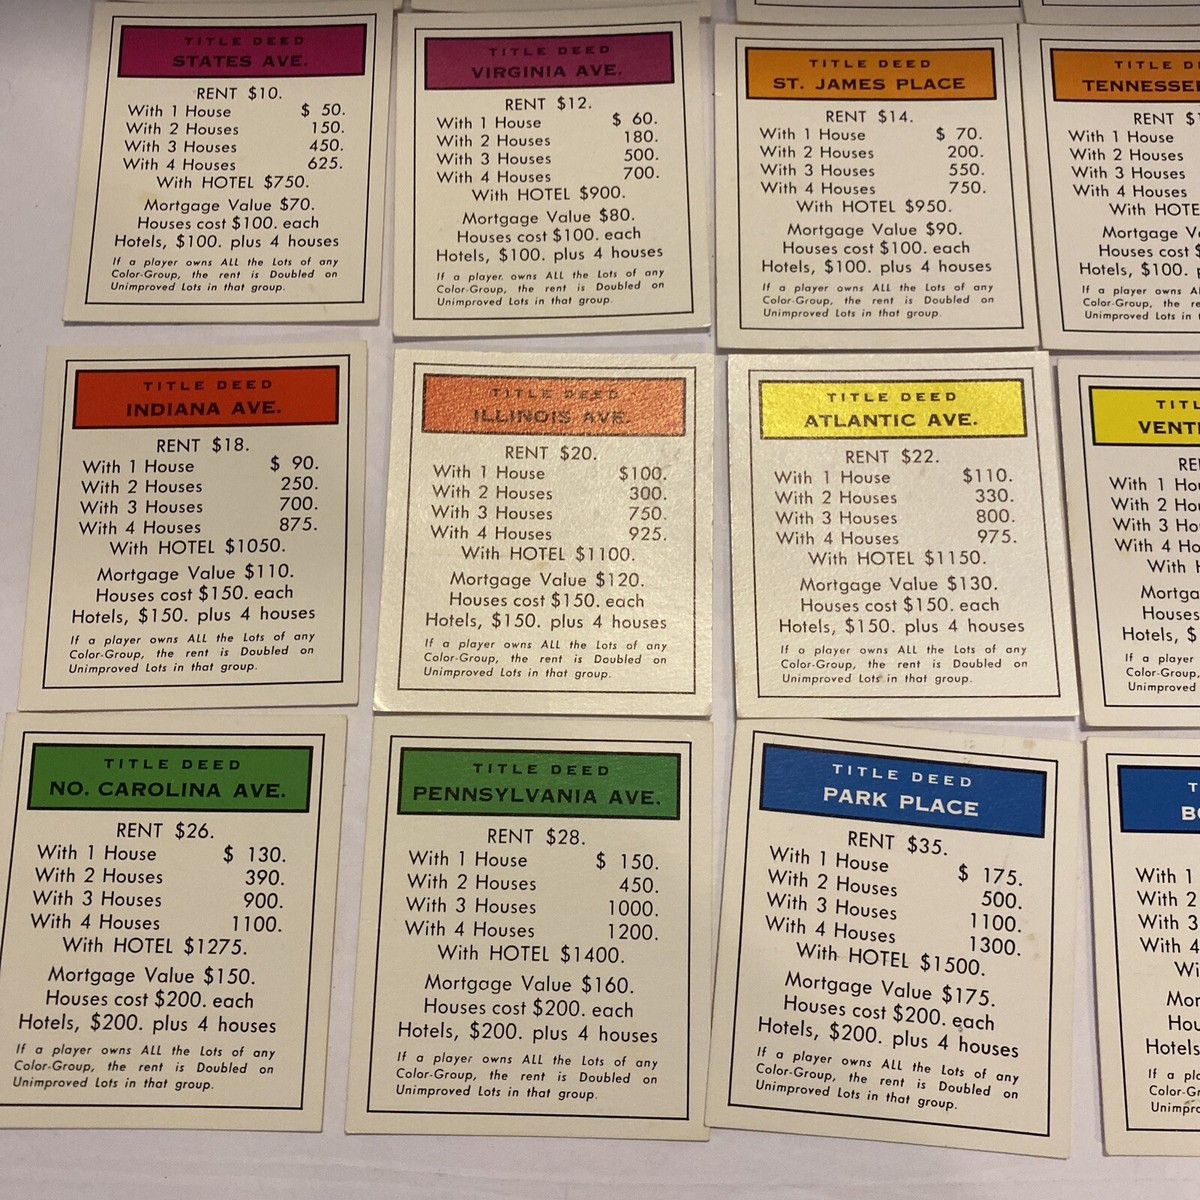 TITLE DEED
STATES AVE.
RENT $10.
With 1 House $ 50.
With 2 Houses 150.
With 3 Houses 450.
With 4 Houses 625.
With HOTEL $750.
Mortgage Value $70.
Houses cost $100. each
Hotels, $100. plus 4 houses
If a player owns ALL the Lots of any
Color-Group, the rent is Doubled on
Unimproved Lots in that group.
TITLE DEED
VIRGINIA AVE.
RENT $12.
With 1 House $ 60.
With 2 Houses 180.
With 3 Houses 500.
With 4 Houses 700.
With HOTEL $900.
Mortgage Value $80.
Houses cost $100. each
Hotels, $100. plus 4 houses
If a player. owns ALL the Lots of any
Color-Group, the rent is Doubled on
Unimproved Lots in that group.
TITLE DEED
ST. JAMES PLACE
RENT $14.
With 1 House $ 70.
With 2 Houses 200.
With 3 Houses 550.
With 4 Houses 750.
With HOTEL $950.
Mortgage Value $90.
Houses cost $100. each
Hotels, $100. plus 4 houses
If a player owns ALL the Lots of any
Color-Group, the rent is Doubled on
Unimproved Lots in that group.
TITLE
TENNESSE
RENT
With 1 House
With 2 Houses
With 3 Houses
With 4 Houses
With HOTE
Mortgage
Houses cost
Hotels, $100.
If a player owns
Color-Group, the
Unimproved Lots in
TITLE DEED
INDIANA AVE.
RENT $18.
With 1 House $ 90.
With 2 Houses 250.
With 3 Houses 700.
With 4 Houses 875.
With HOTEL $1050.
Mortgage Value $110.
Houses cost $150. each
Hotels, $150. plus 4 houses
If a player owns ALL the Lots of any
Color-Group, the rent is Doubled on
Unimproved Lots in that group.
TITLE DEED
ILLINOIS AVE.
RENT $20.
With 1 House $100.
With 2 Houses 300.
With 3 Houses 750.
With 4 Houses 925.
With HOTEL $1100.
Mortgage Value $120.
Houses cost $150. each
Hotels, $150. plus 4 houses
If a player owns ALL the Lots of any
Color-Group, the rent is Doubled on
Unimproved Lots in that group.
TITLE DEED
ATLANTIC AVE.
RENT $22.
With 1 House $110.
With 2 Houses 330.
With 3 Houses 800.
With 4 Houses 975.
With HOTEL $1150.
Mortgage Value $130.
Houses cost $150. each
Hotels, $150. plus 4 houses
If a player owns ALL the Lots of any
Color-Group, the rent is Doubled on
Unimproved Lots in that group.
TITL
VENT
RE
With 1 Hou
With 2 Hou
With 3 Hou
With 4 Ho
With
Mortga
Houses
Hotels, $
If a player
Color-Group,
Unimproved
TITLE DEED
NO. CAROLINA AVE.
RENT $26.
With 1 House $ 130.
With 2 Houses 390.
With 3 Houses 900.
With 4 Houses 1100.
With HOTEL $1275.
Mortgage Value $150.
Houses cost $200. each
Hotels, $200. plus 4 houses
If a player owns ALL the Lots of any
Color-Group, the rent is Doubled on
Unimproved Lots in that group.
TITLE DEED
PENNSYLVANIA AVE.
RENT $28.
With 1 House $ 150.
With 2 Houses 450.
With 3 Houses 1000.
With 4 Houses 1200.
With HOTEL $1400.
Mortgage Value $160.
Houses cost $200. each
Hotels, $200. plus 4 houses
If a player owns ALL the Lots of any
Color-Group, the rent is Doubled on
Unimproved Lots in that group.
TITLE DEED
PARK PLACE
RENT $35.
With 1 House $ 175.
With 2 Houses 500.
With 3 Houses 1100.
With 4 Houses 1300.
With HOTEL $1500.
Mortgage Value $175.
Houses cost $200. each
Hotels, $200. plus 4 houses
If a player owns ALL the Lots of any
Color-Group, the rent is Doubled on
Unimproved Lots in that group.
T
BO
With 1
With 2
With 3
With 4
Wi
Mor
Hou
Hotels
If a pla
Color-Gr
Unimpro